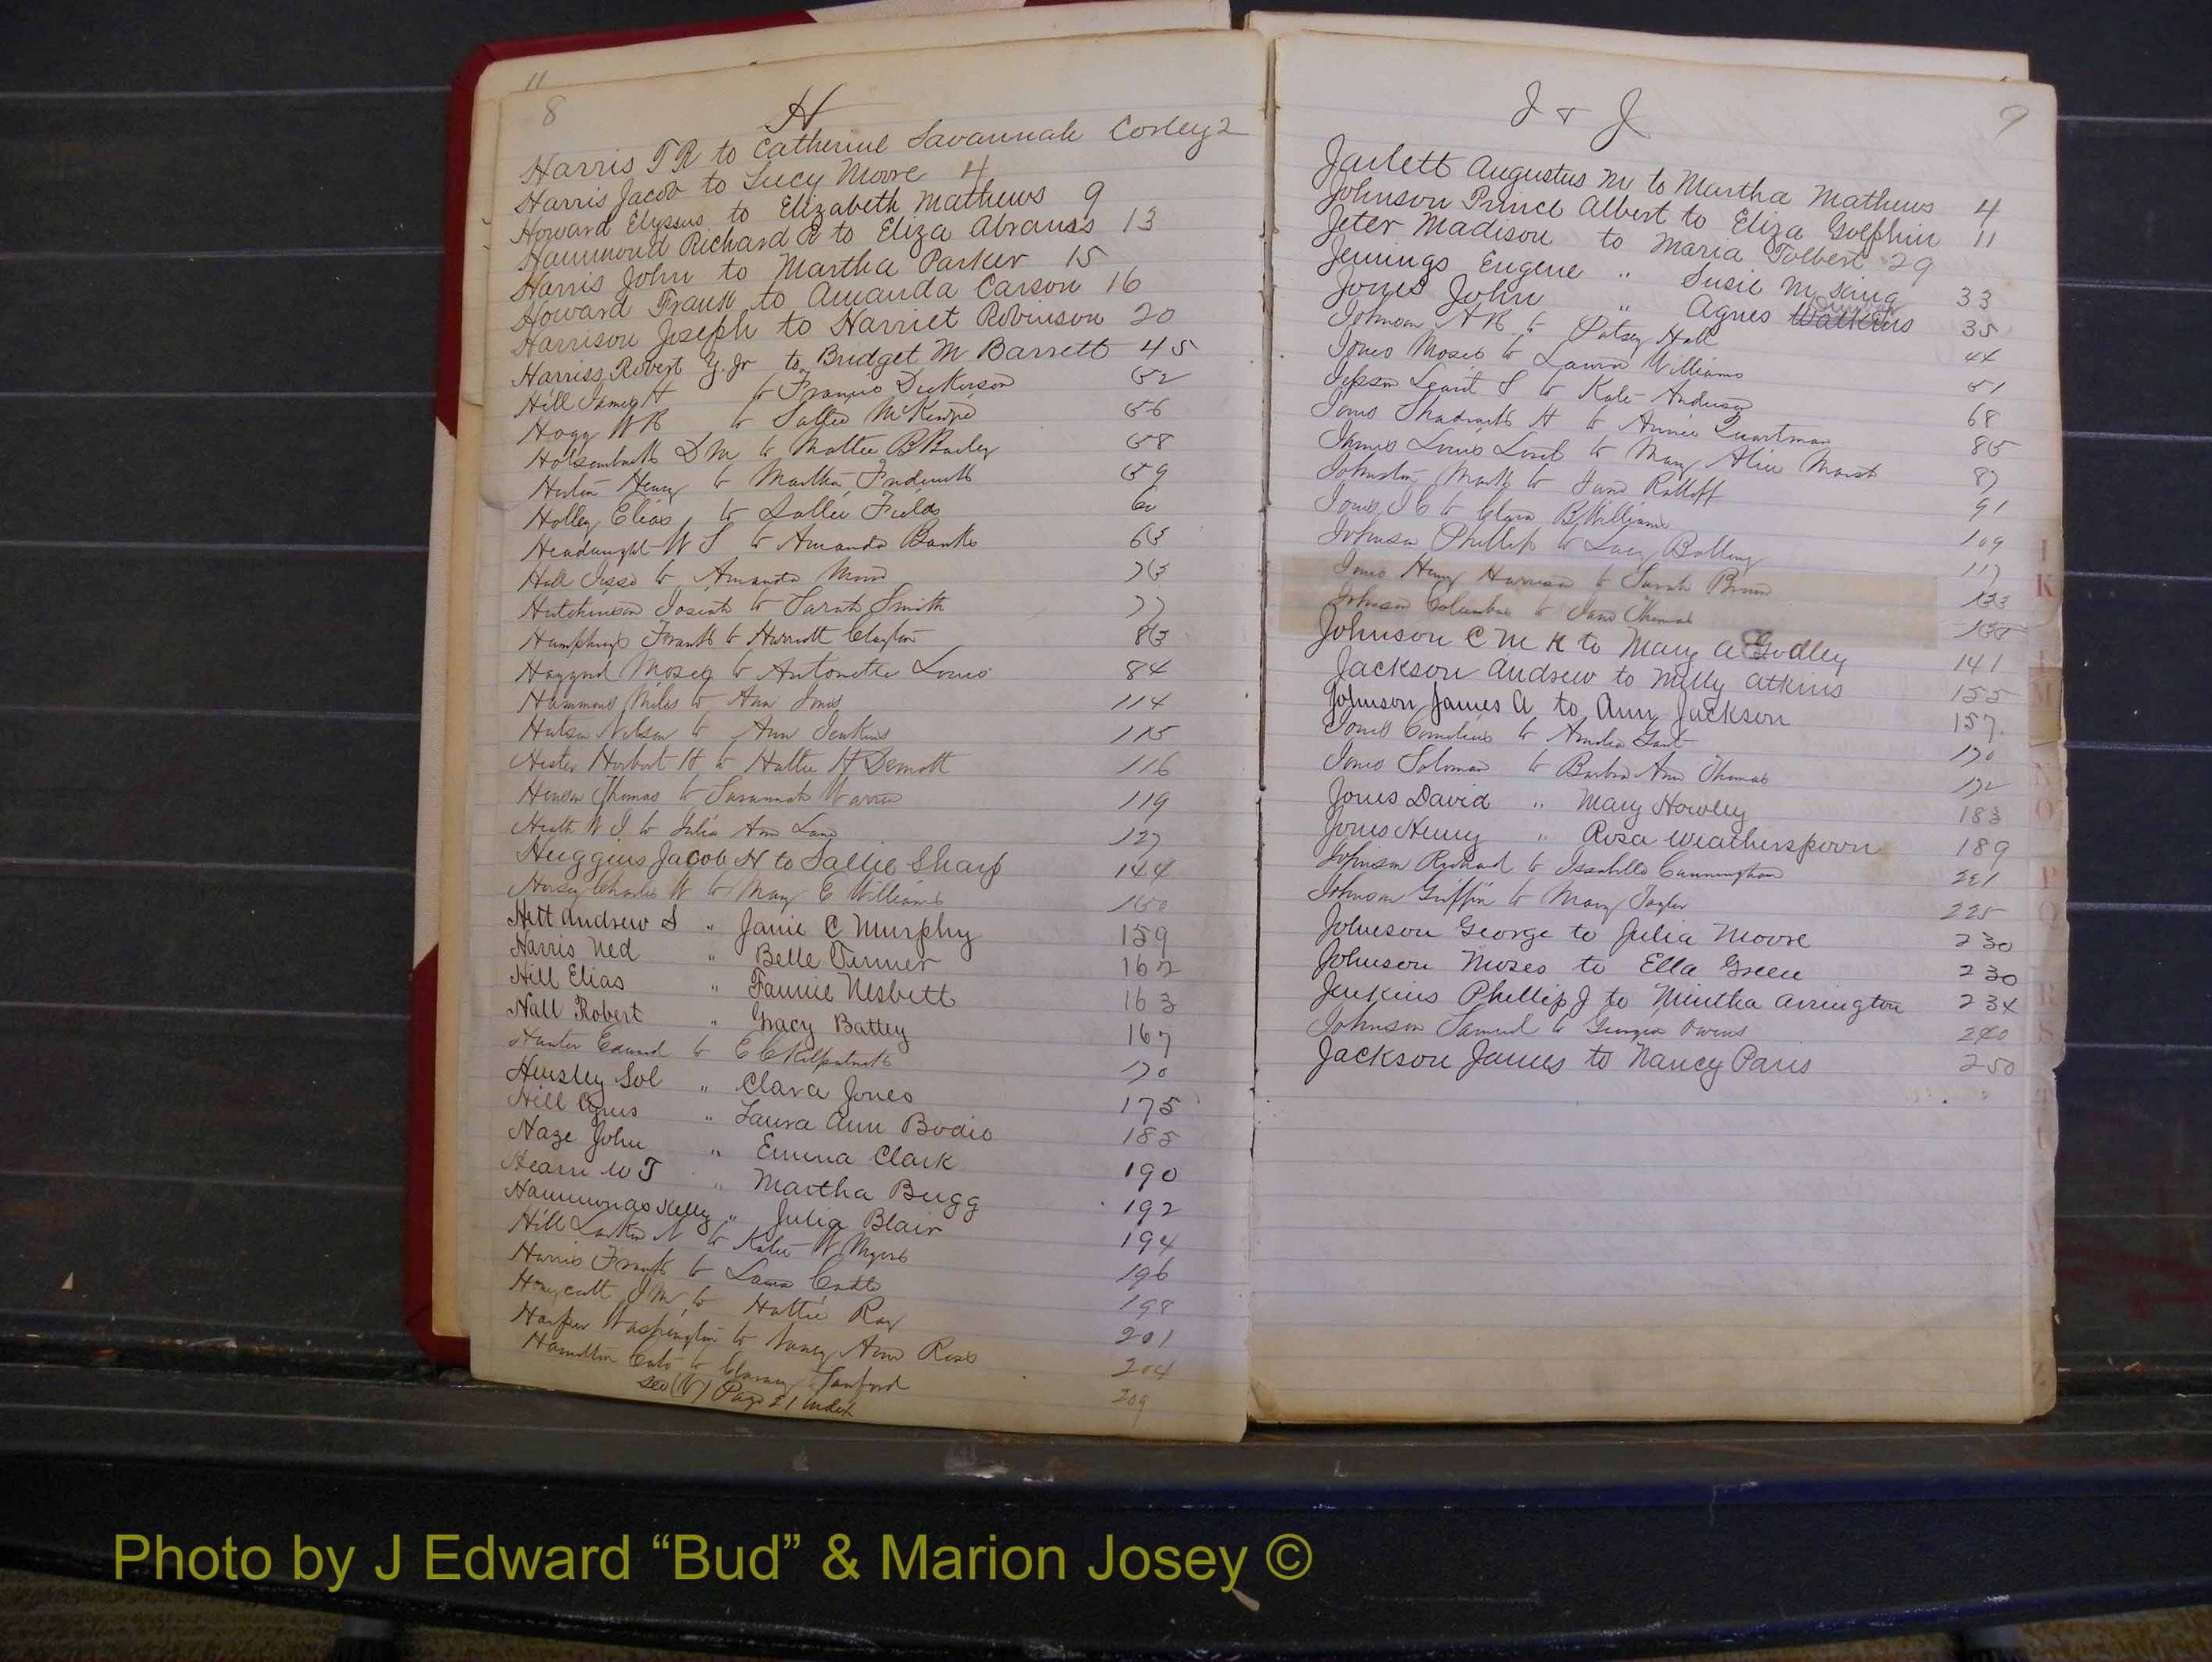 11
8
H
Harris T R to Catherine Savannah Corley 2
Harris Jacob to Lucy Moore 4
Howard Elysses to Elizabeth Mathews 9
Hammond Richard R to Eliza Abrams 13
Harris John to Martha Parker 15
Howard Frank to Amanda Carson 16
Harrison Joseph to Harriet Robinson 20
Harriss Robert Y. Jr to Bridget M Barrett 45
Hill James H to Francis Dickerson 52
Hogg W R to Sallie McKenzie 56
D M to Mattie B Bailey 58
Henry to Martha Frederick 59
Holley Elias to Sallie Fields 60
W S to Amanda Banks 63
Hall Jesse to Amanda 73
Hutchinson Josiah to Sarah Smith 77
Frank to Harriett Clayton 83
Haygood Moses to Antonette 84
Hammond Miles to Ann Jones 114
Nelson to Ann Jenkins 115
Hester Herbert H to Hattie H Demott 116
Thomas to Savannah Warren 119
Heath W J to Julia Ann Lane 127
Huggins Jacob H to Sallie Sharp 144
Charles W to Mary E Williams 150
Hett Andrew S " Janie C Murphy 159
Harris Ned " Belle Turner 162
Hill Elias " Fannie Nesbitt 163
Hall Robert " Gracy Battey 167
Hunter Edward to E C Kilpatrick 170
Hensley Sol " Clara Jones 175
Hill " Laura Ann Bodio 185
Haze John " Emma Clark 190
Hearn W T " Martha Bugg 192
Hammonds Kelly " Julia Blair 194
Hill Larkin N to Katie W Myers 196
Harris Frank to Laura 198
Honeycutt J M to Hattie Ray 201
Harper Washington to Nancy Ann Ross 204
Hamilton Cato to Sanford 209
see (V) Page 21 Index
I + J
9
Jarlett Augustus M to Martha Mathews 4
Johnson Prince Albert to Eliza Golphin 11
Jeter Madison to Maria Tolbert 29
Jennings Eugene " Susie M King 33
Jones John " Agnes Watkins 35
Johnson A R to Patsey Hall 44
Jones Moses to Laura Williams 51
S to Kate Anderson 68
Jones Shadrack H to Annie Quartman 85
James Louis to Mary Alice Marsh 87
Johnston Mark to Jane Ratliff 91
Jones J C to Clara B Williams 109
Johnson Phillip to Lucy Bolling 117
Jones Henry Harrison to Sarah 133
Johnson Columbus to Jane Thomas
Johnson C M K to Mary A Godley 141
Jackson Andrew to Milly Atkins 155
Johnson James A to Ann Jackson 157
Jones Cornelius to Amelia Gant 170
Jones Soloman to Barbra Ann Thomas 172
Jones David " Mary Howley 183
Jones Henry " Rosa Weatherspoon 189
Johnson Richard to Issabella Cunningham 221
Johnson Griffin to Mary Taylor 225
Johnson George to Julia Moore 230
Johnson Moses to Ella Green 230
Jenkins Phillip J to Mintha Arrington 234
Johnson Samuel to Georgia Owens 240
Jackson James to Nancy Paris 250
I
K
L
M
N
O
P
Q
R
S
Photo by J Edward “Bud” & Marion Josey ©